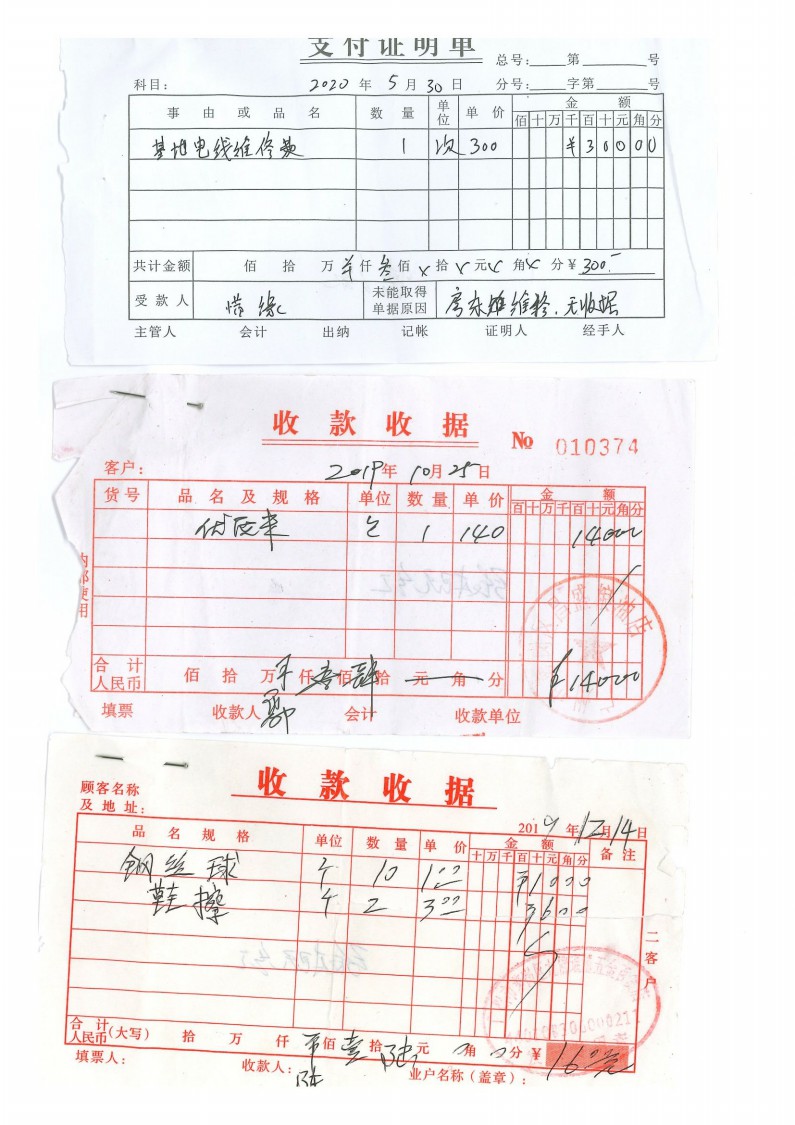 支付证明单
总号:____第____号
科目: 2020年5月30日 分号:____字第____号
事由或品名 数量 单位 单价 金额
佰十万千百十元角分
基地电线维修款 1 次 300 ¥30000
共计金额 佰 拾 万 ¥仟叁佰x拾x元x角x分¥300.-
受款人 惜缘 未能取得单据原因 房东 维修,无收据
主管人 会计 出纳 记帐 证明人 经手人
收款收据
№ 010374
客户: 2019年10月25日
货号 品名及规格 单位 数量 单价 金额
百十万千百十元角分
1 140 14000
内部使用
合计人民币 佰 拾 万 仟壹佰肆拾 元 角 分 ¥14000
填票 收款人 会计 收款单位
收款收据
顾客名称
及地址:
2019年12月14日
品名规格 单位 数量 单价 金额 备注
十万千百十元角分
钢丝球 个 10 1.00 ¥1000
鞋擦 个 2 3.00 ¥600
二客户
合计人民币(大写) 拾 万 仟 佰壹拾陆元 角 分¥ 16元
填票人: 收款人: 业户名称(盖章):